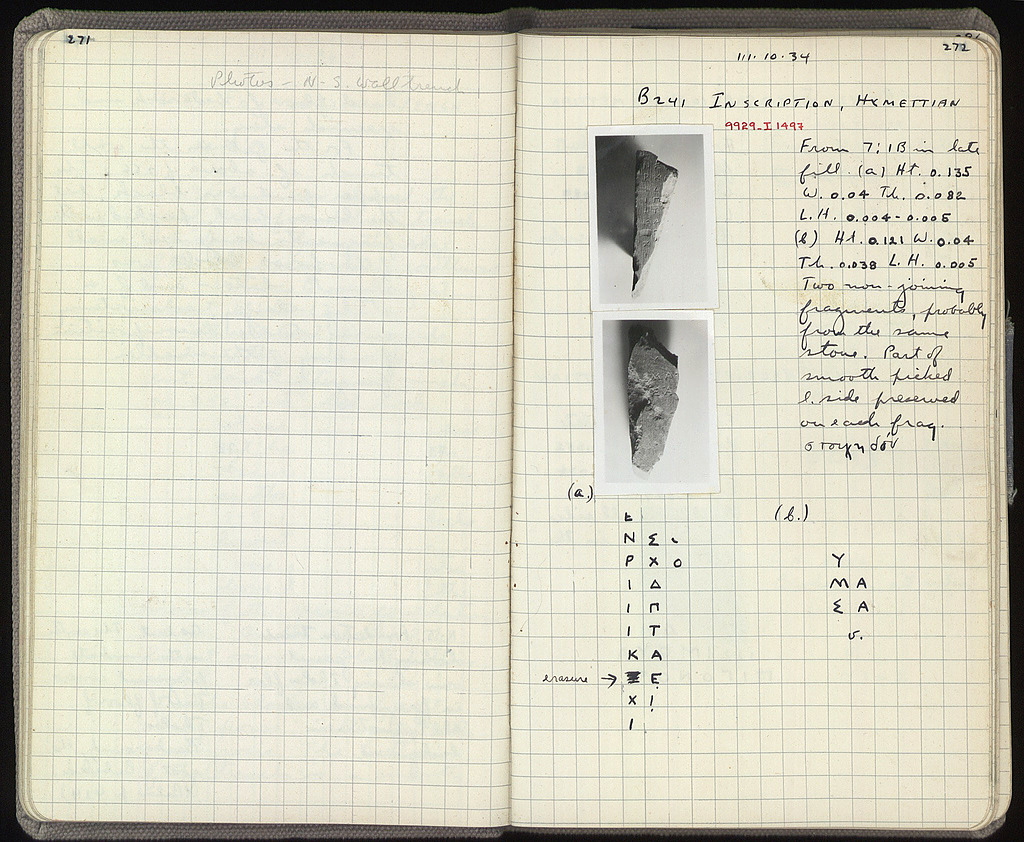 271
Photos - N-S. Wall trench
272
111·10·34
B241 INSCRIPTION, HYMETTIAN
9929-I 1497
From 7:1B in late
fill. (a) Ht. 0.135
W. 0.04 Th. 0.082
L.H. 0.004-0.005
(b) Ht. 0.121 W. 0.04
Th. 0.038 L.H. 0.005
Two non-joining
fragments, probably
from the same
stone. Part of
smooth picked
l. side preserved
on each frag.
στοιχηδόν
(a.)
Ν Σ
Ρ Χ Ο
Ι Δ
Ι Π
Ι Τ
Κ Α
erasure → Ε
Χ Ι
Ι
(b.)
Υ
Μ Α
Σ Α
υ.